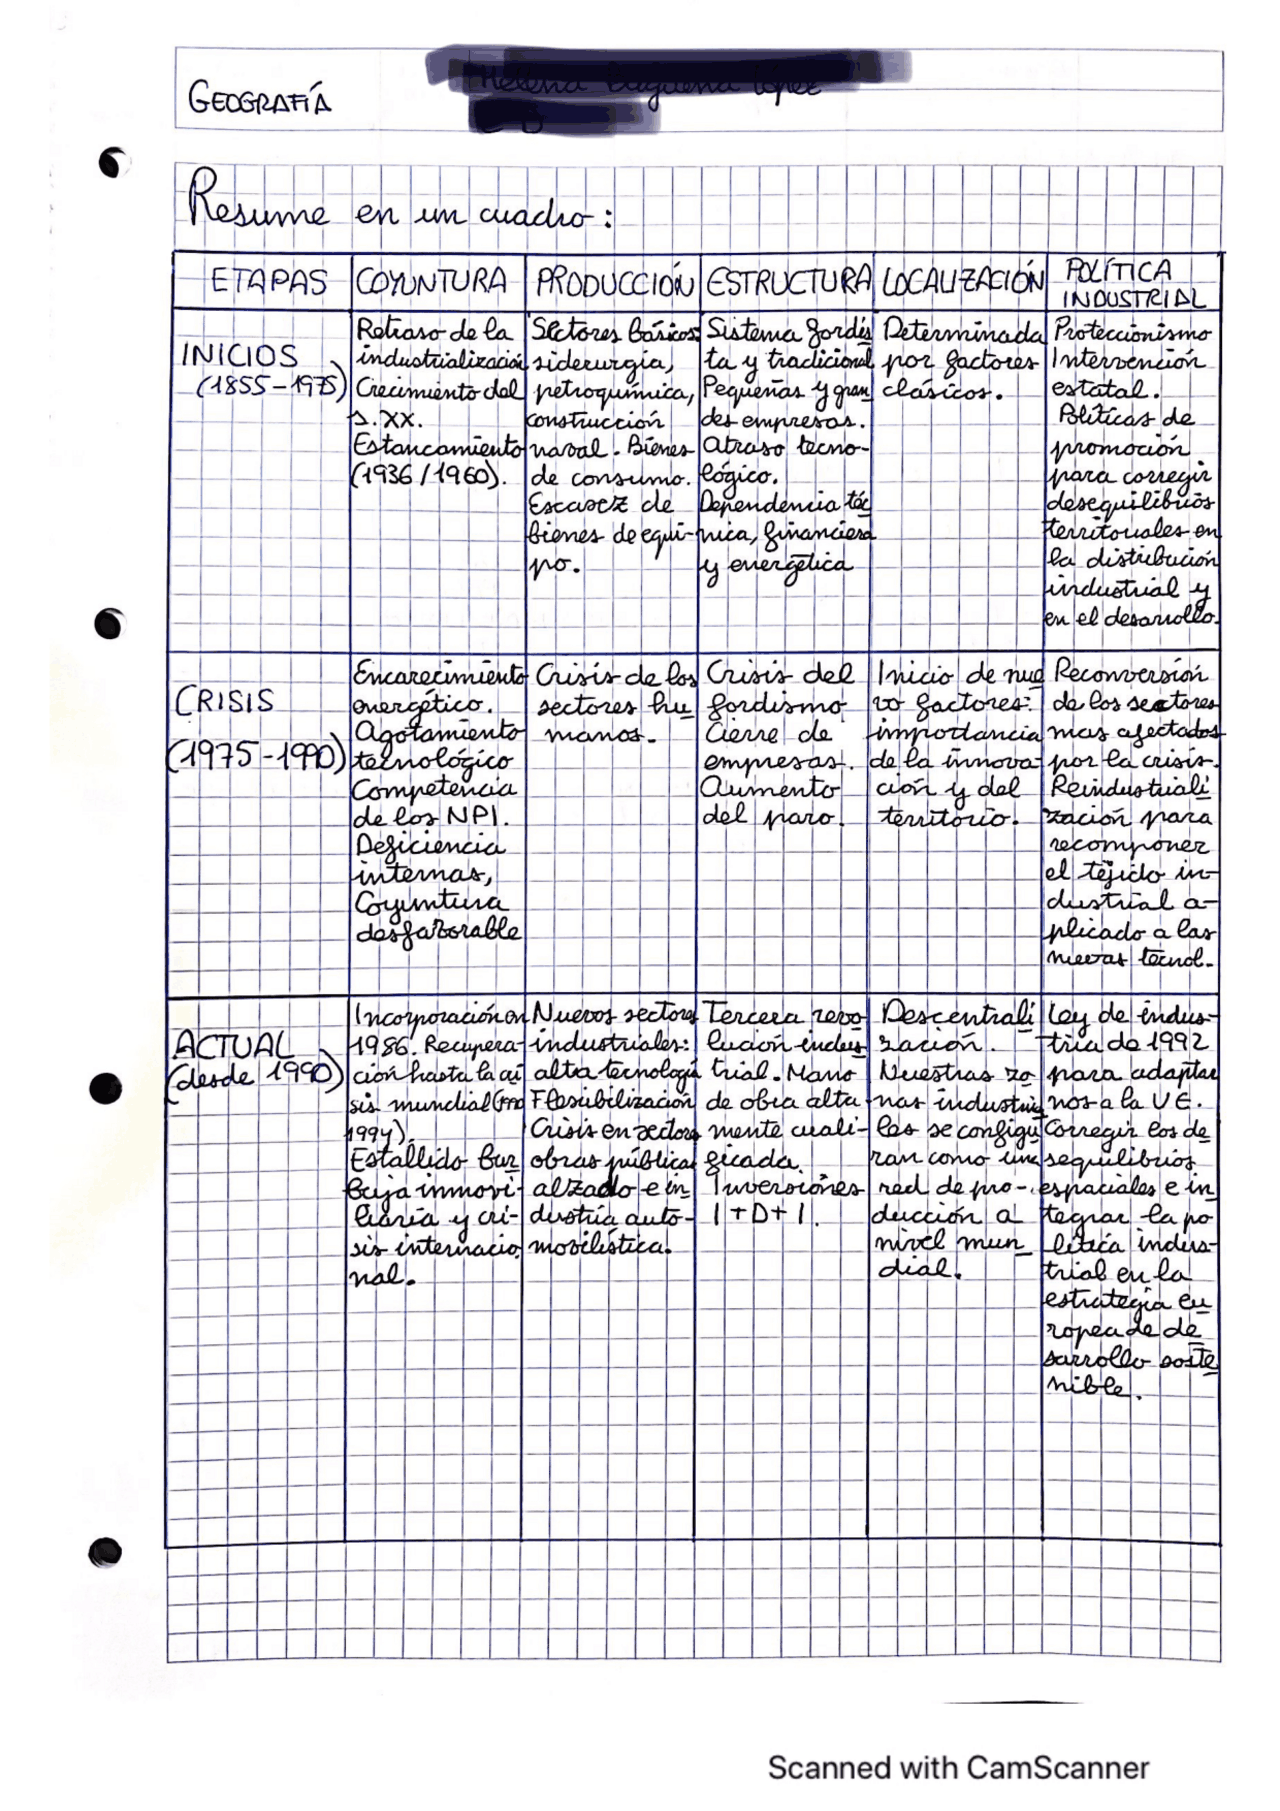 GEOGRAFÍA
Resume en un cuadro:
ETAPAS
COYUNTURA
PRODUCCIÓN
ESTRUCTURA
LOCALIZACIÓN
POLÍTICA
INDUSTRIAL
INICIOS
(1855-1975)
Retraso de la
industrialización
Crecimiento del
S. XX.
Estancamiento
(1936/1960).
Sectores básicos:
siderurgia,
petroquímica,
construcción
naval. Bienes
de consumo.
Escasez de
bienes de equi-
po.
Sistema fordis
ta y tradicional
Pequeñas y gran
des empresas.
Atraso tecno-
lógico.
Dependencia téc
nica, financiera
y energética
Determinada
por factores
clásicos.
Proteccionismo
Intervención
estatal.
Políticas de
promoción
para corregir
desequilibrios
territoriales en
la distribución
industrial y
en el desarrollo.
CRISIS
(1975-1990)
Encarecimiento
energético.
Agotamiento
tecnológico
Competencia
de los NPI.
Deficiencia
internas,
Coyuntura
desfavorable
Crisis de los
sectores hu
manos.
Crisis del
fordismo
Cierre de
empresas.
Aumento
del paro.
Inicio de nue
vo factores:
importancia
de la innova-
ción y del
territorio.
Reconversión
de los sectores
mas afectados
por la crisis.
Reindustriali
zación para
recomponer
el tejido in-
dustrial a-
plicado a las
nuevas tecnol.
ACTUAL
(desde 1990)
Incorporación en
1986. Recupera-
ción hasta la cri
sis mundial
1994).
Estallido bur
buja inmovi-
liaria y cri-
sis internacio
nal.
Nuevos sectores
industriales:
alta tecnología
Flexibilización
Crisis en sectores
obras públicas
alzado e in
dustria auto-
movilística.
Tercera revo
lución indus
trial. Mano
de obra alta
mente cuali-
ficada.
Inversiones
I+D+I.
Descentrali
zación.
Nuestras zo
nas industria
les se configu
ran como una
red de pro-
ducción a
nivel mun
dial.
Ley de indus-
tria de 1992
para adaptar
nos a la UE.
Corregir los de
sequilibrios
espaciales e in
tegrar la po
lítica indus-
trial en la
estrategia eu
ropea de de
sarrollo soste
nible.
Scanned with CamScanner